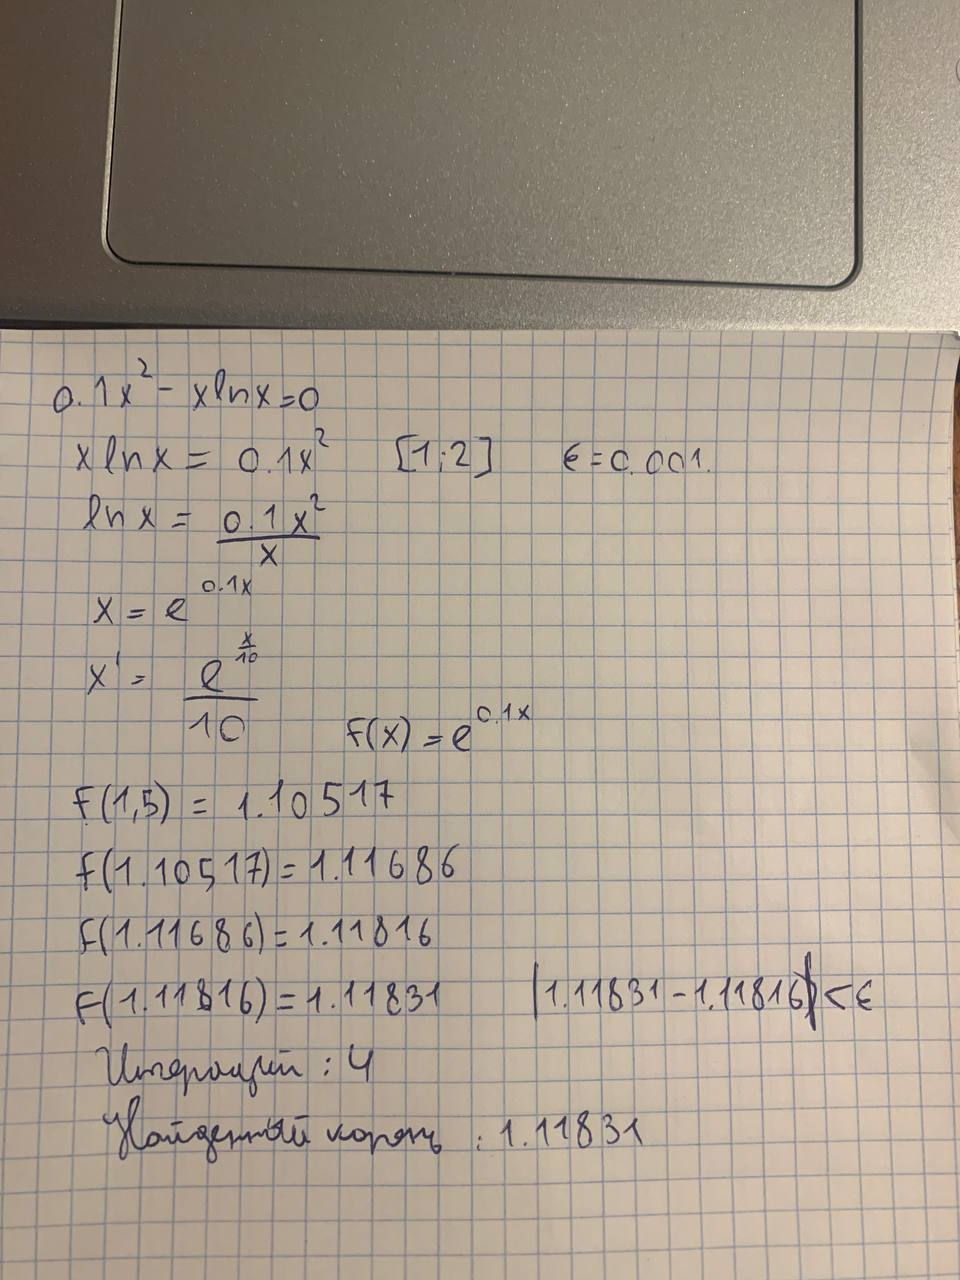 0.1x² - xlnx=0
xlnx = 0.1x² [1;2] ϵ=0.001.
lnx = 0.1x²/x
x = e^0.1x
x' = e^(x/10)/10
F(x) = e^0.1x
F(1,5) = 1.10517
F(1.10517)=1.11686
F(1.11686)=1.11816
F(1.11816)=1.11831 |1.11831-1.11816|<ϵ
Итераций : 4
Найденный корень : 1.11831